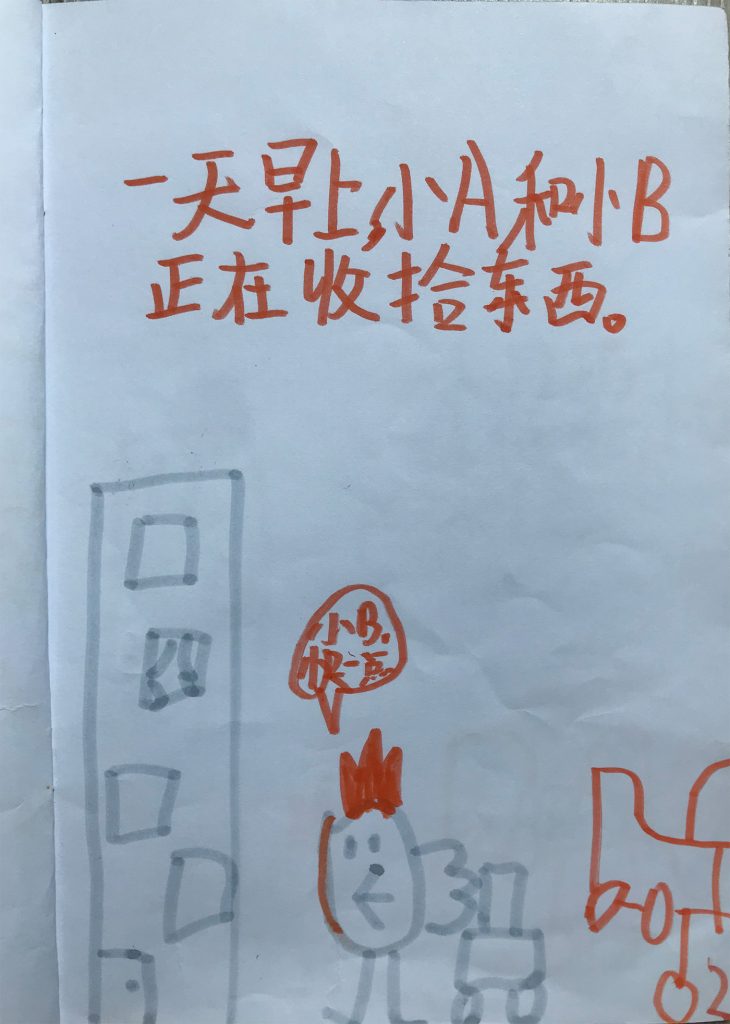 一天早上,小A和小B
正在收拾东西。
小B,
快一点